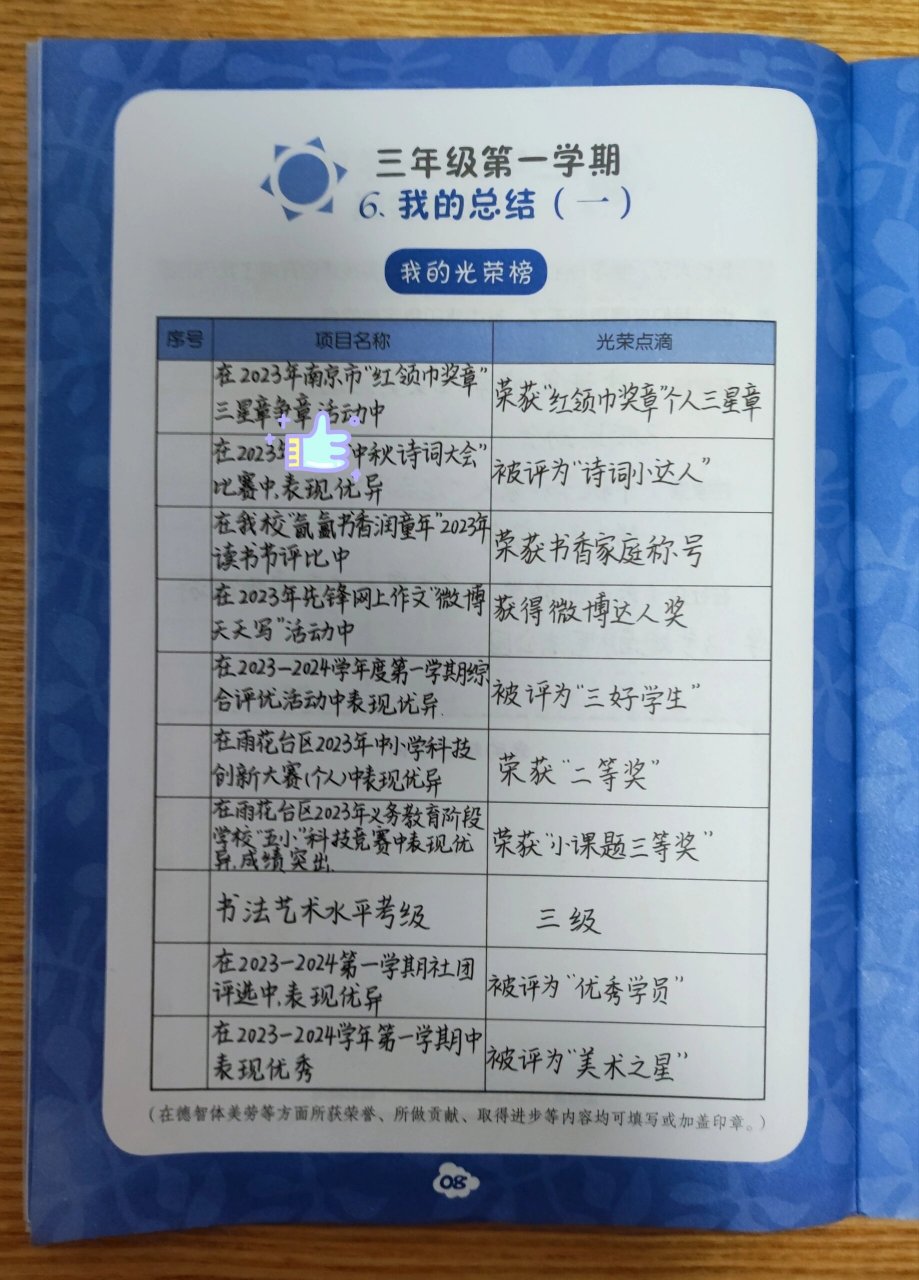 三年级第一学期
6、我的总结（一）
我的光荣榜
序号 项目名称 光荣点滴
在2023年南京市“红领巾奖章”
三星章争章活动中
荣获“红领巾奖章”个人三星章
在2023 中秋诗词大会”
比赛中,表现优异
被评为“诗词小达人”
在我校“氤氲书香润童年”2023年
读书节评比中
荣获书香家庭称号
在2023年先锋网上作文“微博
天天写”活动中
获得微博达人奖
在2023-2024学年度第一学期综
合评优活动中表现优异.
被评为“三好学生”
在雨花台区2023年中小学科技
创新大赛(个人)中表现优异
荣获“二等奖”
在雨花台区2023年义务教育阶段
学校“五小”科技竞赛中表现优
异,成绩突出.
荣获“小课题三等奖”
书法艺术水平考级
三级
在2023-2024第一学期社团
评选中,表现优异
被评为“优秀学员”
在2023-2024学年第一学期中
表现优秀
被评为“美术之星”
(在德智体美劳等方面所获荣誉、所做贡献、取得进步等内容均可填写或加盖印章。)
08